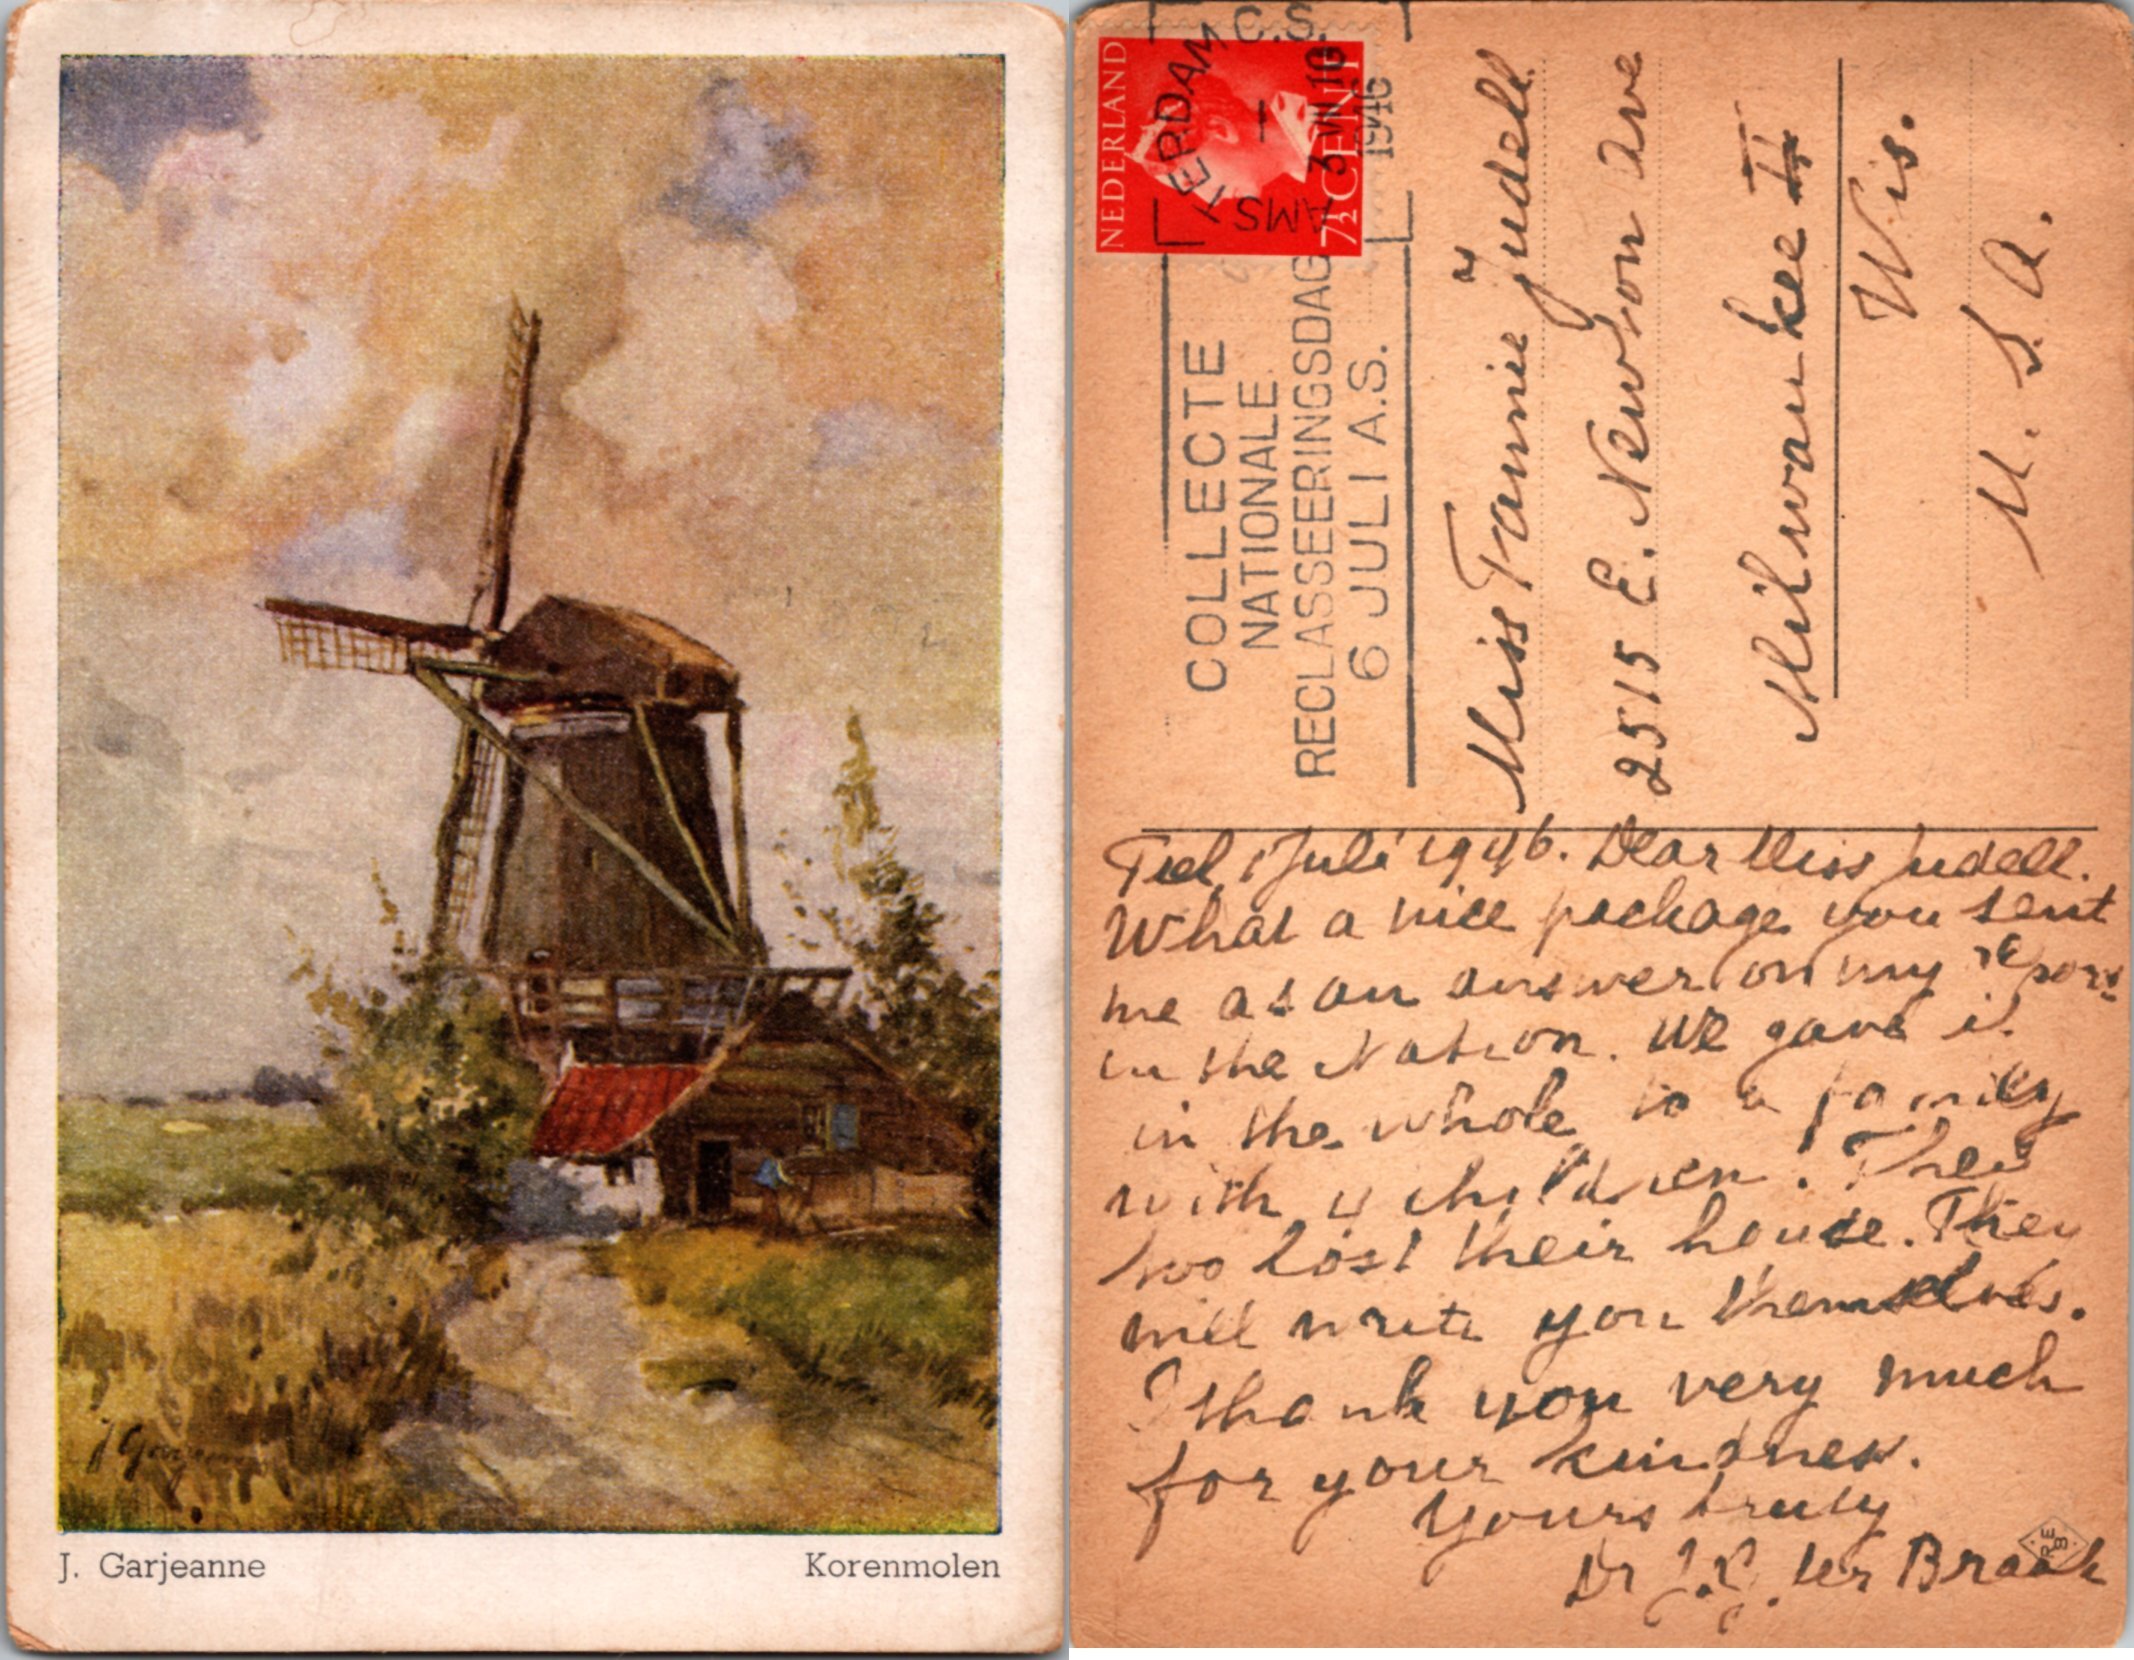 J. Garjeanne
Korenmolen
NEDERLAND
7½ CENT
AMSTERDAM C.S.
1946
COLLECTE
NATIONALE
RECLASSEERINGSDAG
6 JULI A.S.
Miss Fannie Judell
2515 E. Newton Ave
Milwaukee
Wis.
U. S. A.
Tiel, 1 Juli 1946. Dear Miss Judell.
What a nice package you sent
me as an answer on my report
in the Nation. We gave it
in the whole to a family
with 4 children. They
too lost their house. They
will write you themselves.
I thank you very much
for your kindness.
Yours truly
Dr ter Braak